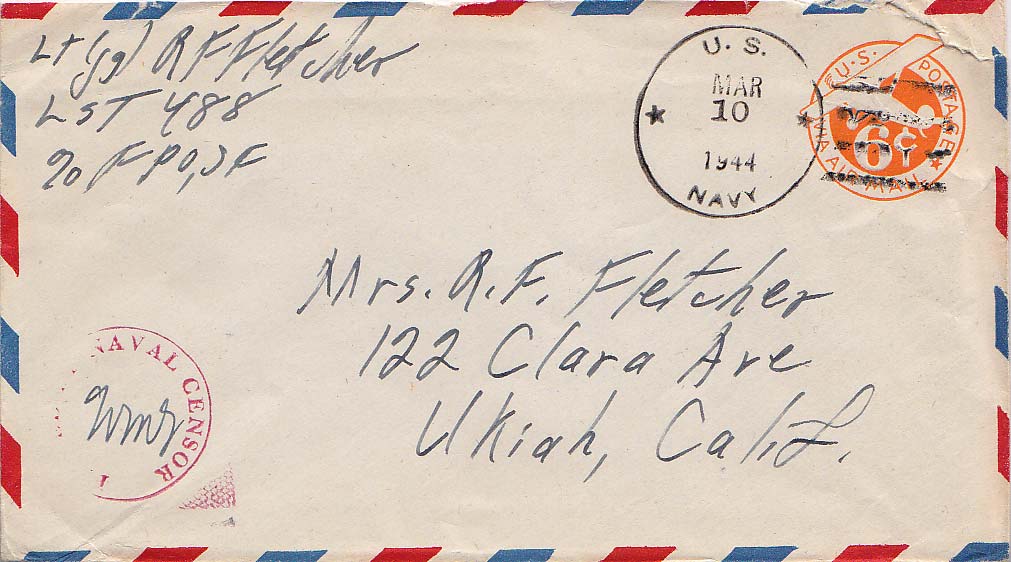 Lt (jg) R F Fletcher
LST 488
℅ F P O, S F
U. S.
MAR
10
1944
NAVY
U.S. POSTAGE
6¢
VIA AIR MAIL
Mrs. R. F. Fletcher
122 Clara Ave
Ukiah, Calif.
NAVAL CENSOR